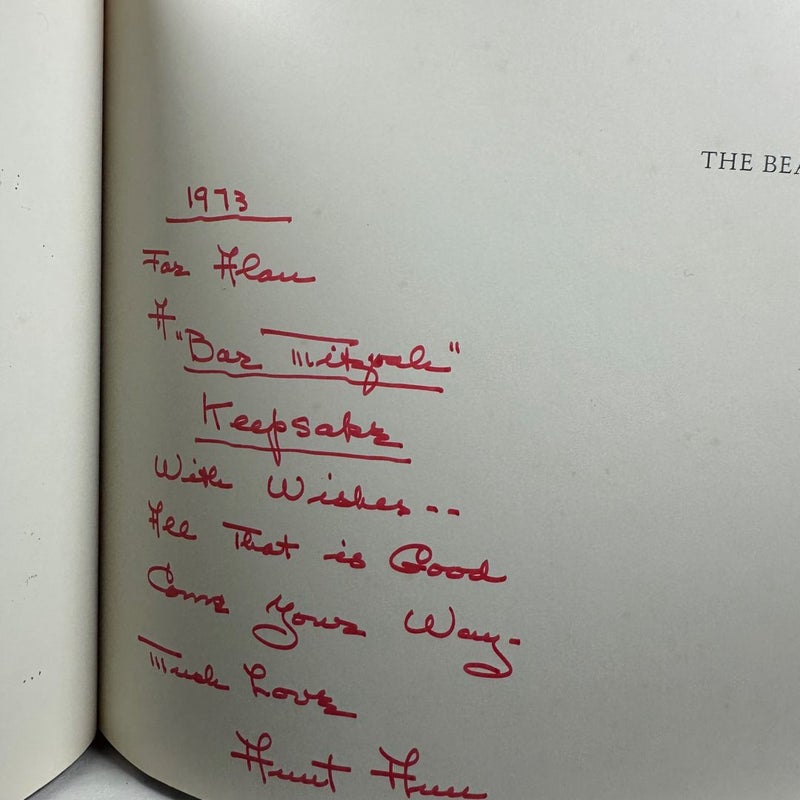 THE BEA
1973
For Alan
A "Bar Mitzvah"
Keepsake
With Wishes--
All That is Good
Come Your Way-
Much Love
Aunt Ann